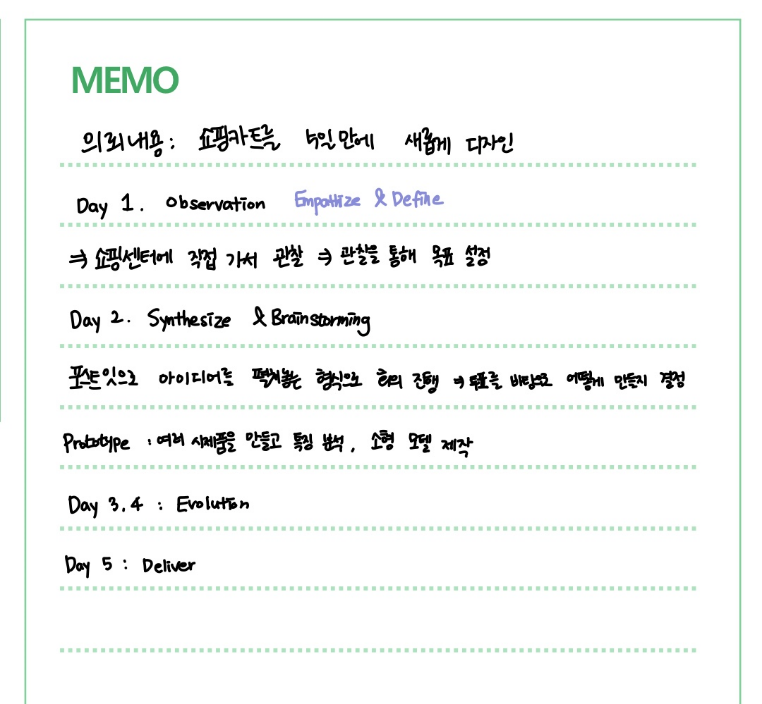 MEMO
의뢰내용: 쇼핑카트를 5일만에 새롭게 디자인
Day 1. Observation Empathize & Define
⇒ 쇼핑센터에 직접 가서 관찰 ⇒ 관찰을 통해 목표 설정
Day 2. Synthesize & Brainstorming
포스트잇으로 아이디어를 펼쳐놓는 형식으로 회의 진행 ⇒ 투표를 바탕으로 어떻게 만들지 결정
Prototype : 여러 시제품을 만들고 특징 분석, 소형 모델 제작
Day 3.4 : Evolution
Day 5 : Deliver